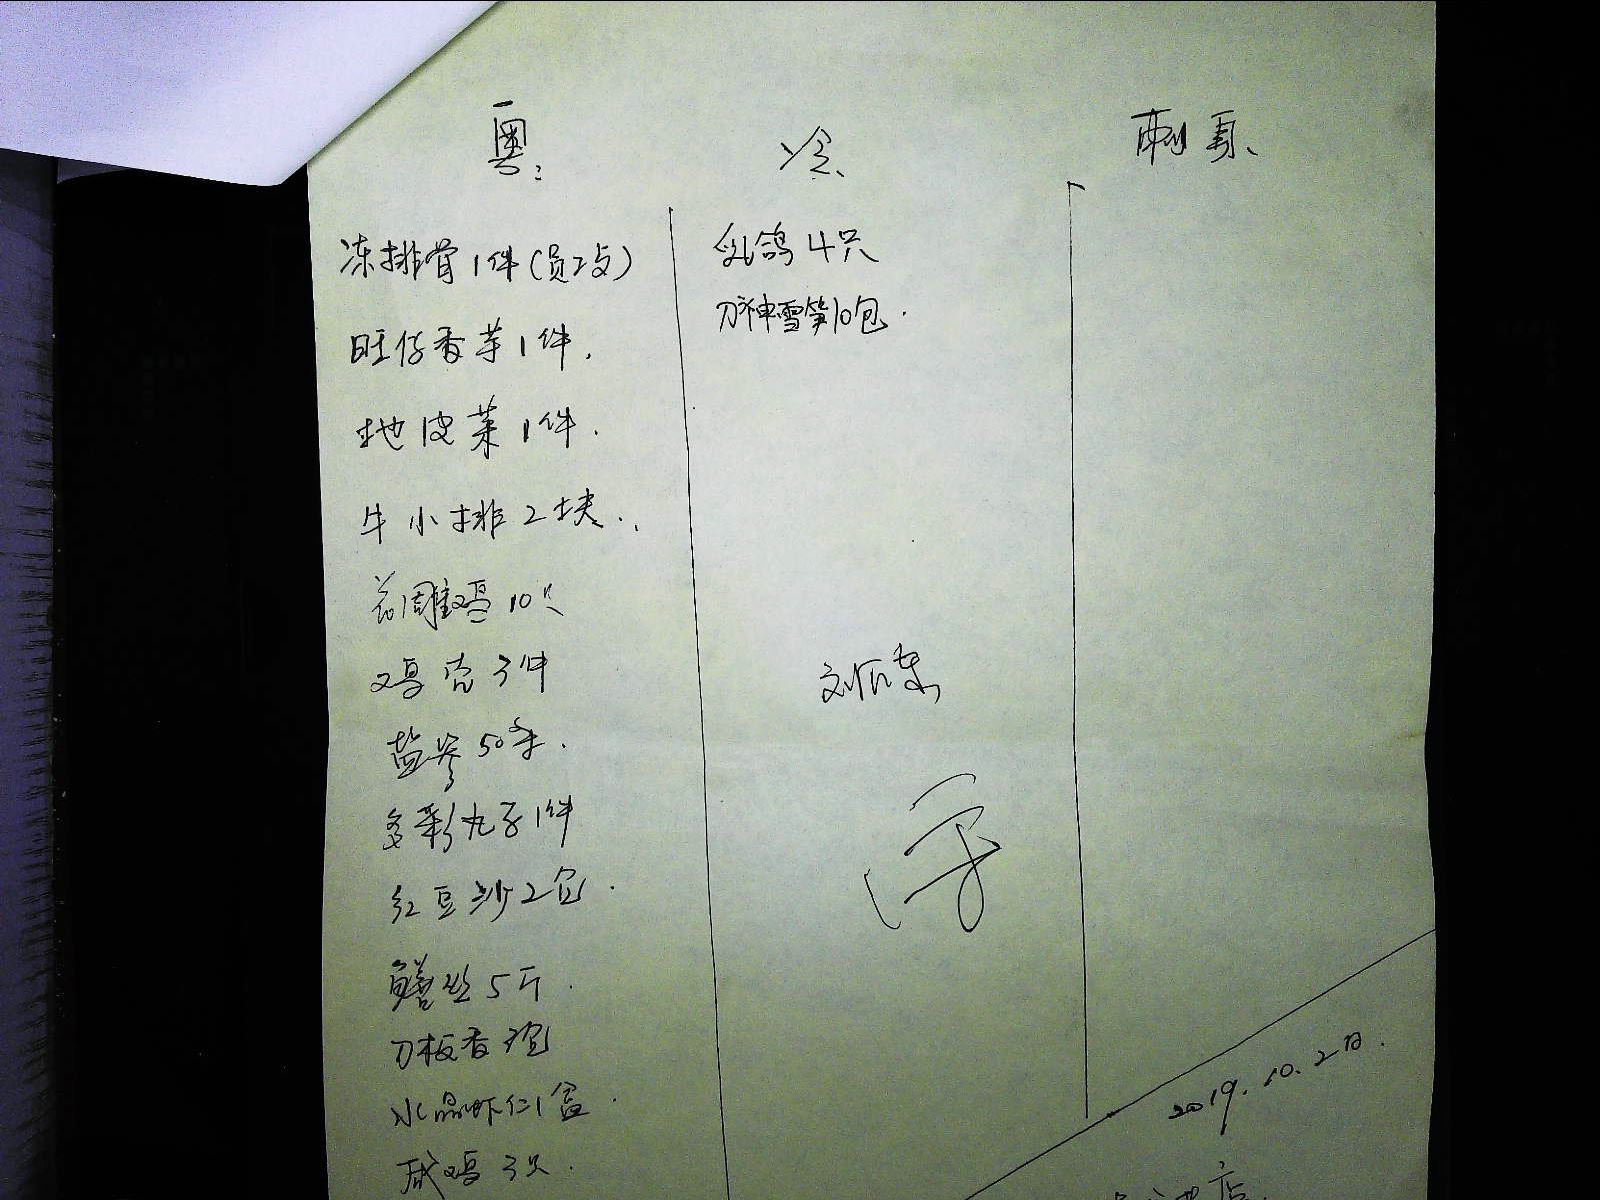 粤:
冻排骨1件(员工与)
旺仔香芋1件.
地皮菜1件.
牛小排2块..
花雕鸡10只
鸡壳3件
盐参50条.
多彩丸子1件
红豆沙2包.
鳝丝5斤.
刀板香2包
水晶虾仁1盒.
咸鸡3只.
冷、
乳鸽4只
刀神雪笋10包.
刺身、
2019.10.2日.
店